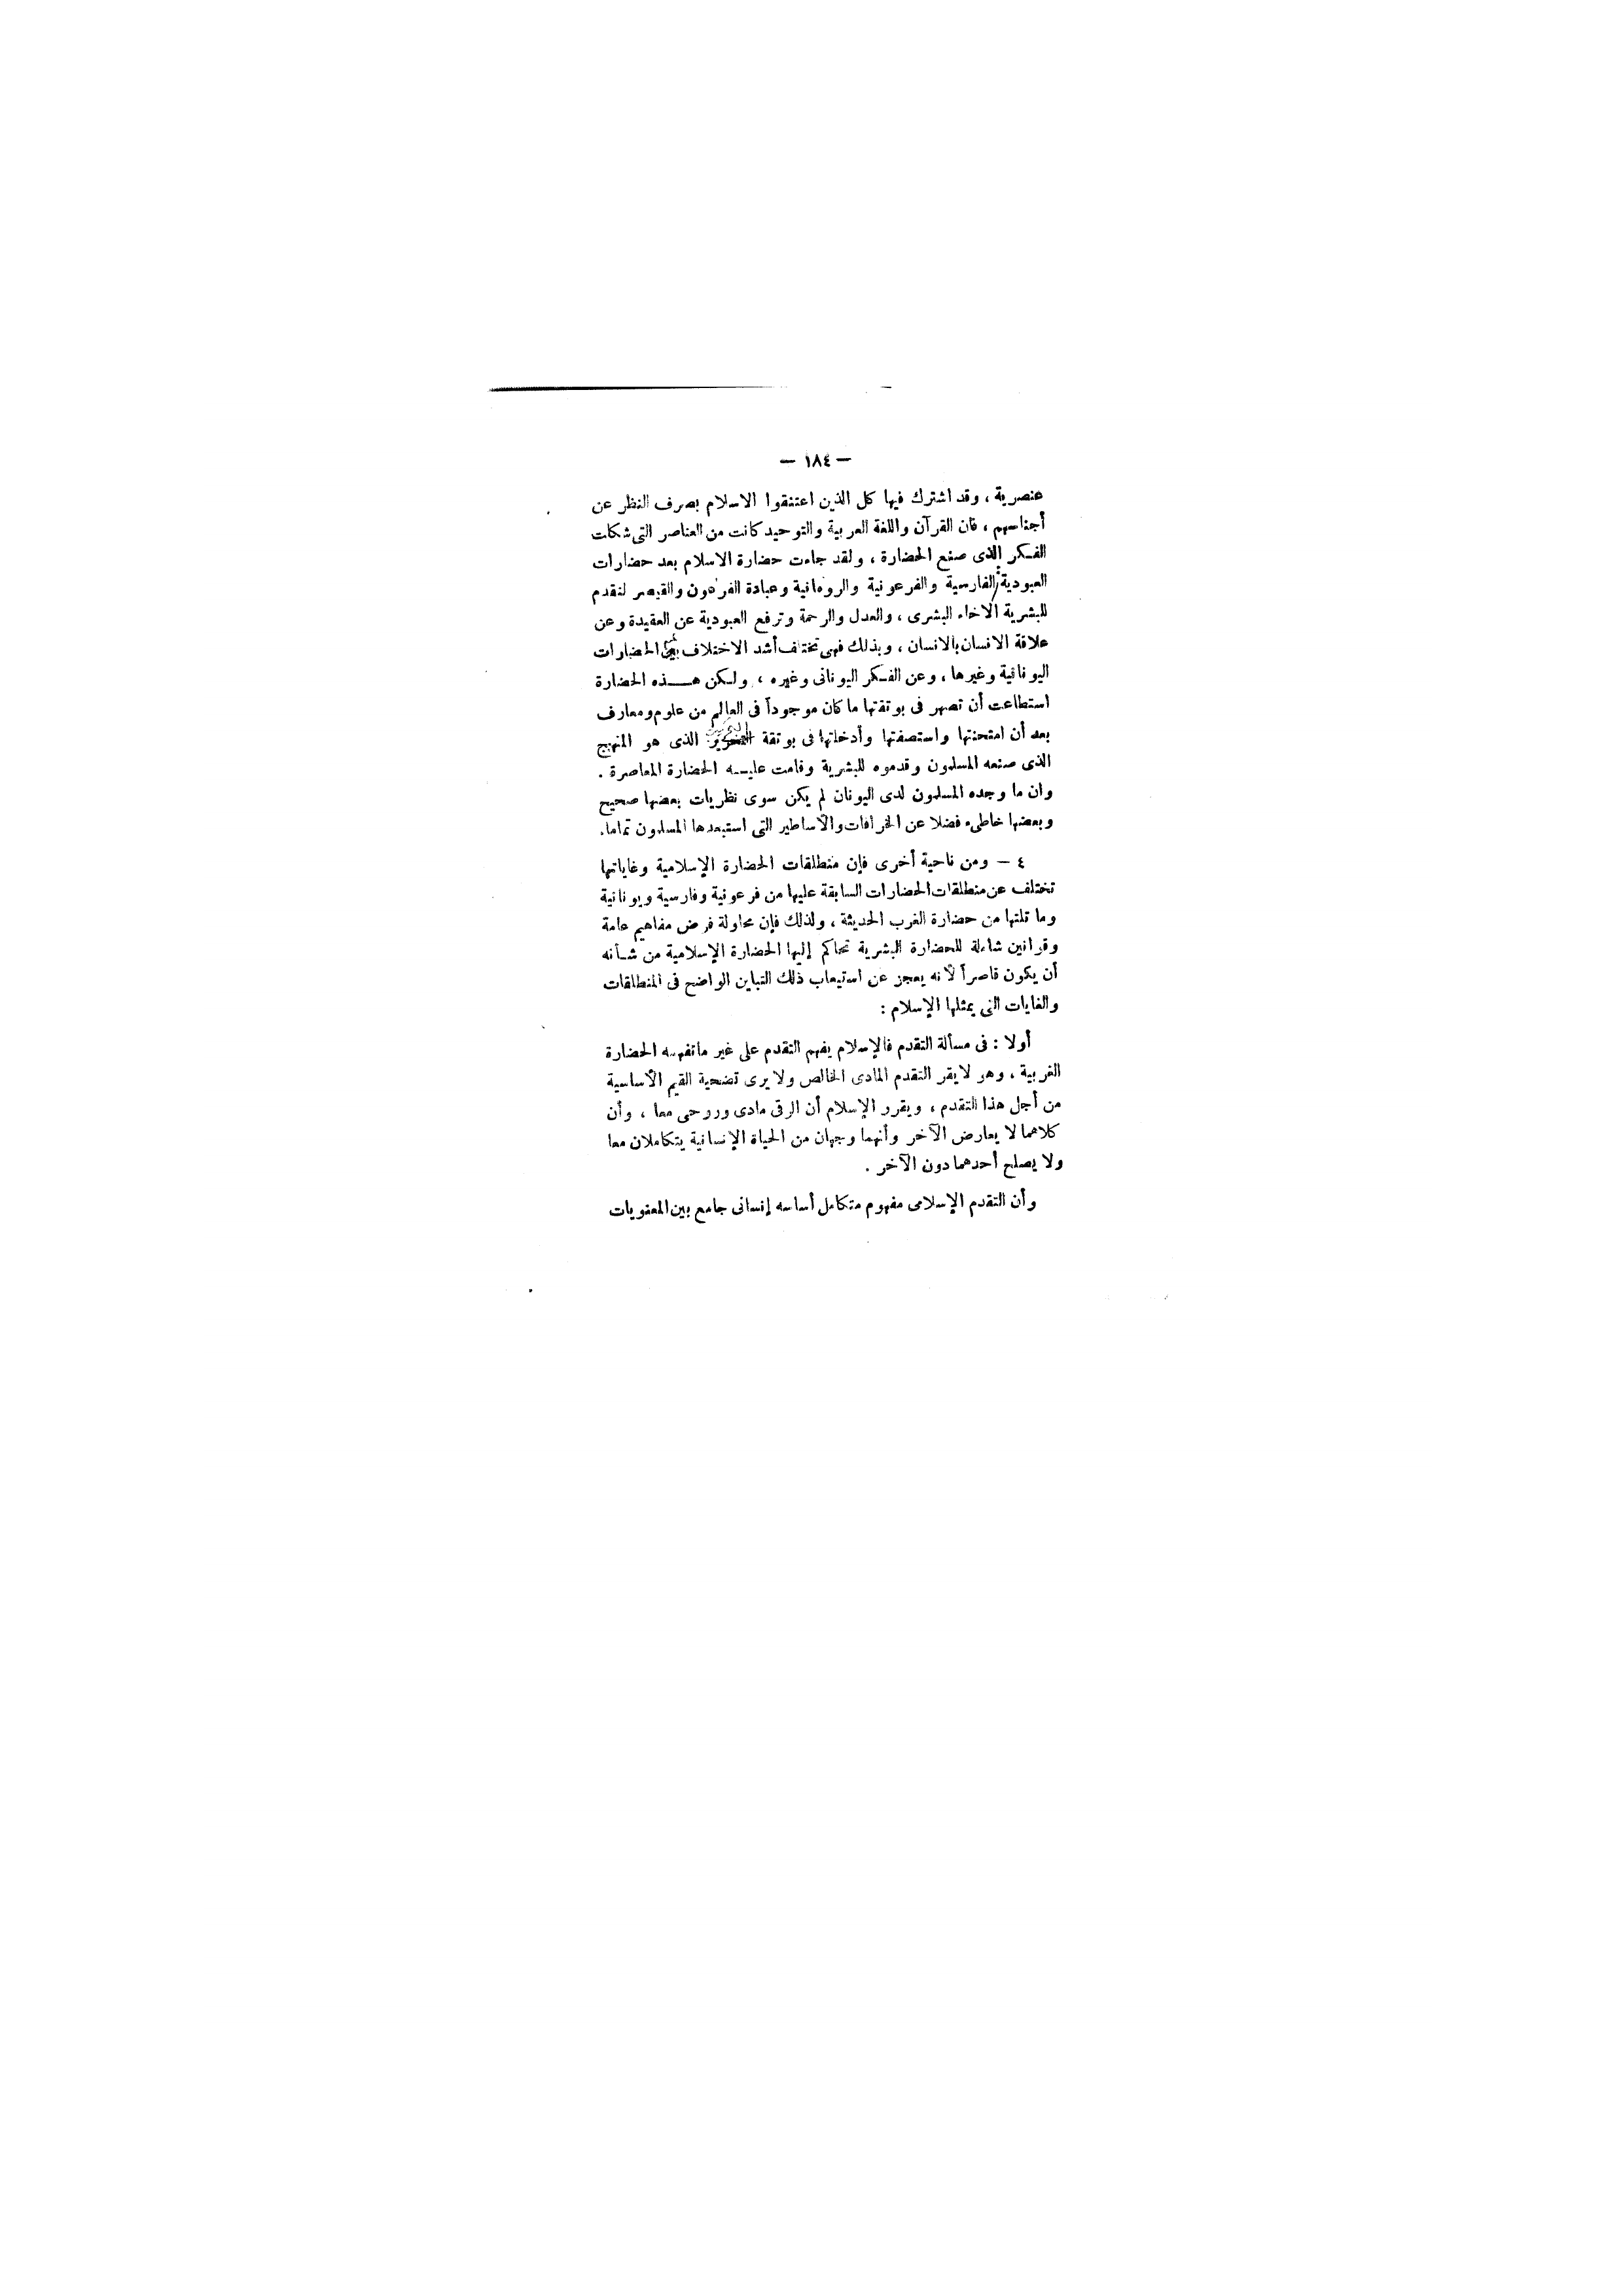 — ١٨٤ —
عنصرية ، وقد اشترك فيها كل الذين اعتنقوا الاسلام بصرف النظر عن
أجناسهم ، فان القرآن واللغة العربية والتوحيد كانت من العناصر التى شكلت
الفكر الذى صنع الحضارة ، ولقد جاءت حضارة الاسلام بعد حضارات
العبودية الفارسية والفرعونية والرومانية وعبادة الفرعون والقيصر لتقدم
للبشرية الاخاء البشرى ، والعدل والرحمة وترفع العبودية عن العقيدة وعن
علاقة الانسان بالانسان ، وبذلك فهى تختلف أشد الاختلاف الحضارات
اليونانية وغيرها ، وعن الفكر اليونانى وغيره ، ولكن هــذه الحضارة
استطاعت أن تصهر فى بوتقتها ما كان موجوداً فى العالم من علوم ومعارف
بعد أن امتحنتها واستصفتها وأدخلتها فى بوتقة الذى هو المنهج
الذى صنعه المسلمون وقدموه للبشرية وقامت عليه الحضارة المعاصرة .
وان ما وجده المسلمون لدى اليونان لم يكن سوى نظريات بعضها صحيح
وبعضها خاطىء فضلا عن الخرافات والأساطير التى استبعدها المسلمون تماما.
٤ — ومن ناحية أخرى فإن منطلقات الحضارة الإسلامية وغاياتها
تختلف عن منطلقات الحضارات السابقة عليها من فرعونية وفارسية ويونانية
وما تلتها من حضارة الغرب الحديثة ، ولذلك فإن محاولة فرض مفاهيم عامة
وقوانين شاملة للحضارة البشرية تحاكم إليها الحضارة الإسلامية من شأنه
أن يكون قاصراً لأنه يعجز عن استيعاب ذلك التباين الواضح فى المنطلقات
والغايات التى يمثلها الإسلام :
أولا : فى مسألة التقدم فالإسلام يفهم التقدم على غير ماتفهمه الحضارة
الغربية ، وهو لايقر التقدم المادى الخالص ولا يرى تضحية القيم الأساسية
من أجل هذا التقدم ، ويقرر الإسلام أن الرقى مادى وروحى معا ، وأن
كلاهما لا يعارض الآخر وأنهما وجهان من الحياة الإنسانية يتكاملان معا
ولا يصلح أحدهما دون الآخر .
وأن التقدم الإسلامى مفهوم متكامل أساسه إنسانى جامع بين المعنويات